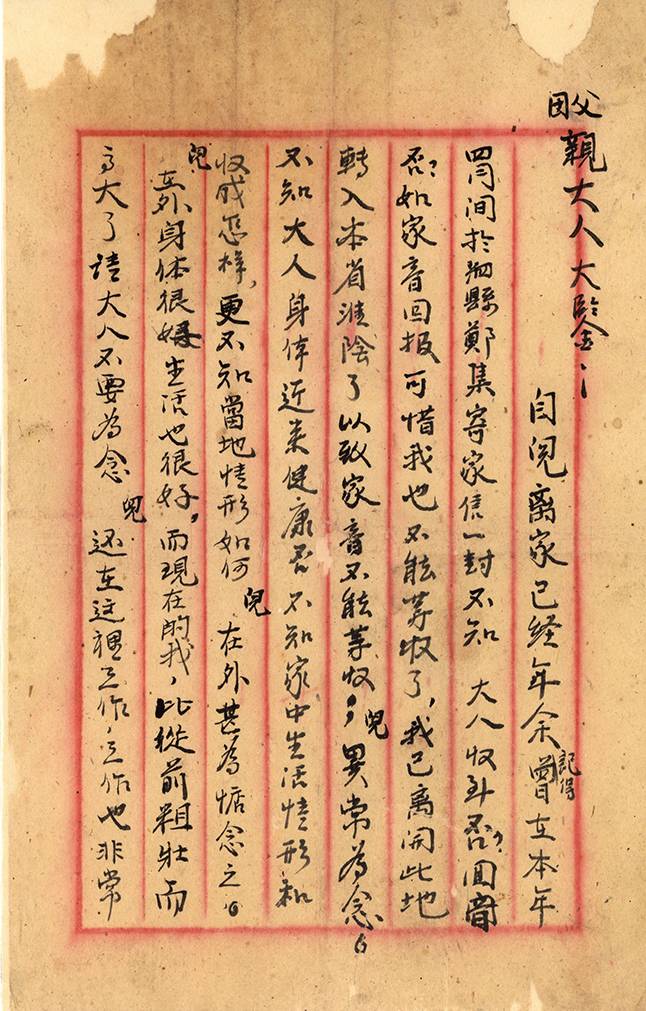 父
親大人大鉴：
自児离家已经年余記得曾在本年
四月间扵泗縣鄭集寄家信一封不知 大人收到否？回音
否？如家音回报可惜我也不能等收了，我已离开此地
轉入本省淮陰了以致家音不能等收，兒異常為念。
不知大人身体近来健康否 不知家中生活情形和
收成怎样，更不知當地情形如何 兒在外甚為惦念之。
兒在外身体很好生活也很好，而現在的我，比從前粗壮而
高大了 请大人不要為念 兒还在这裡工作，工作也非常